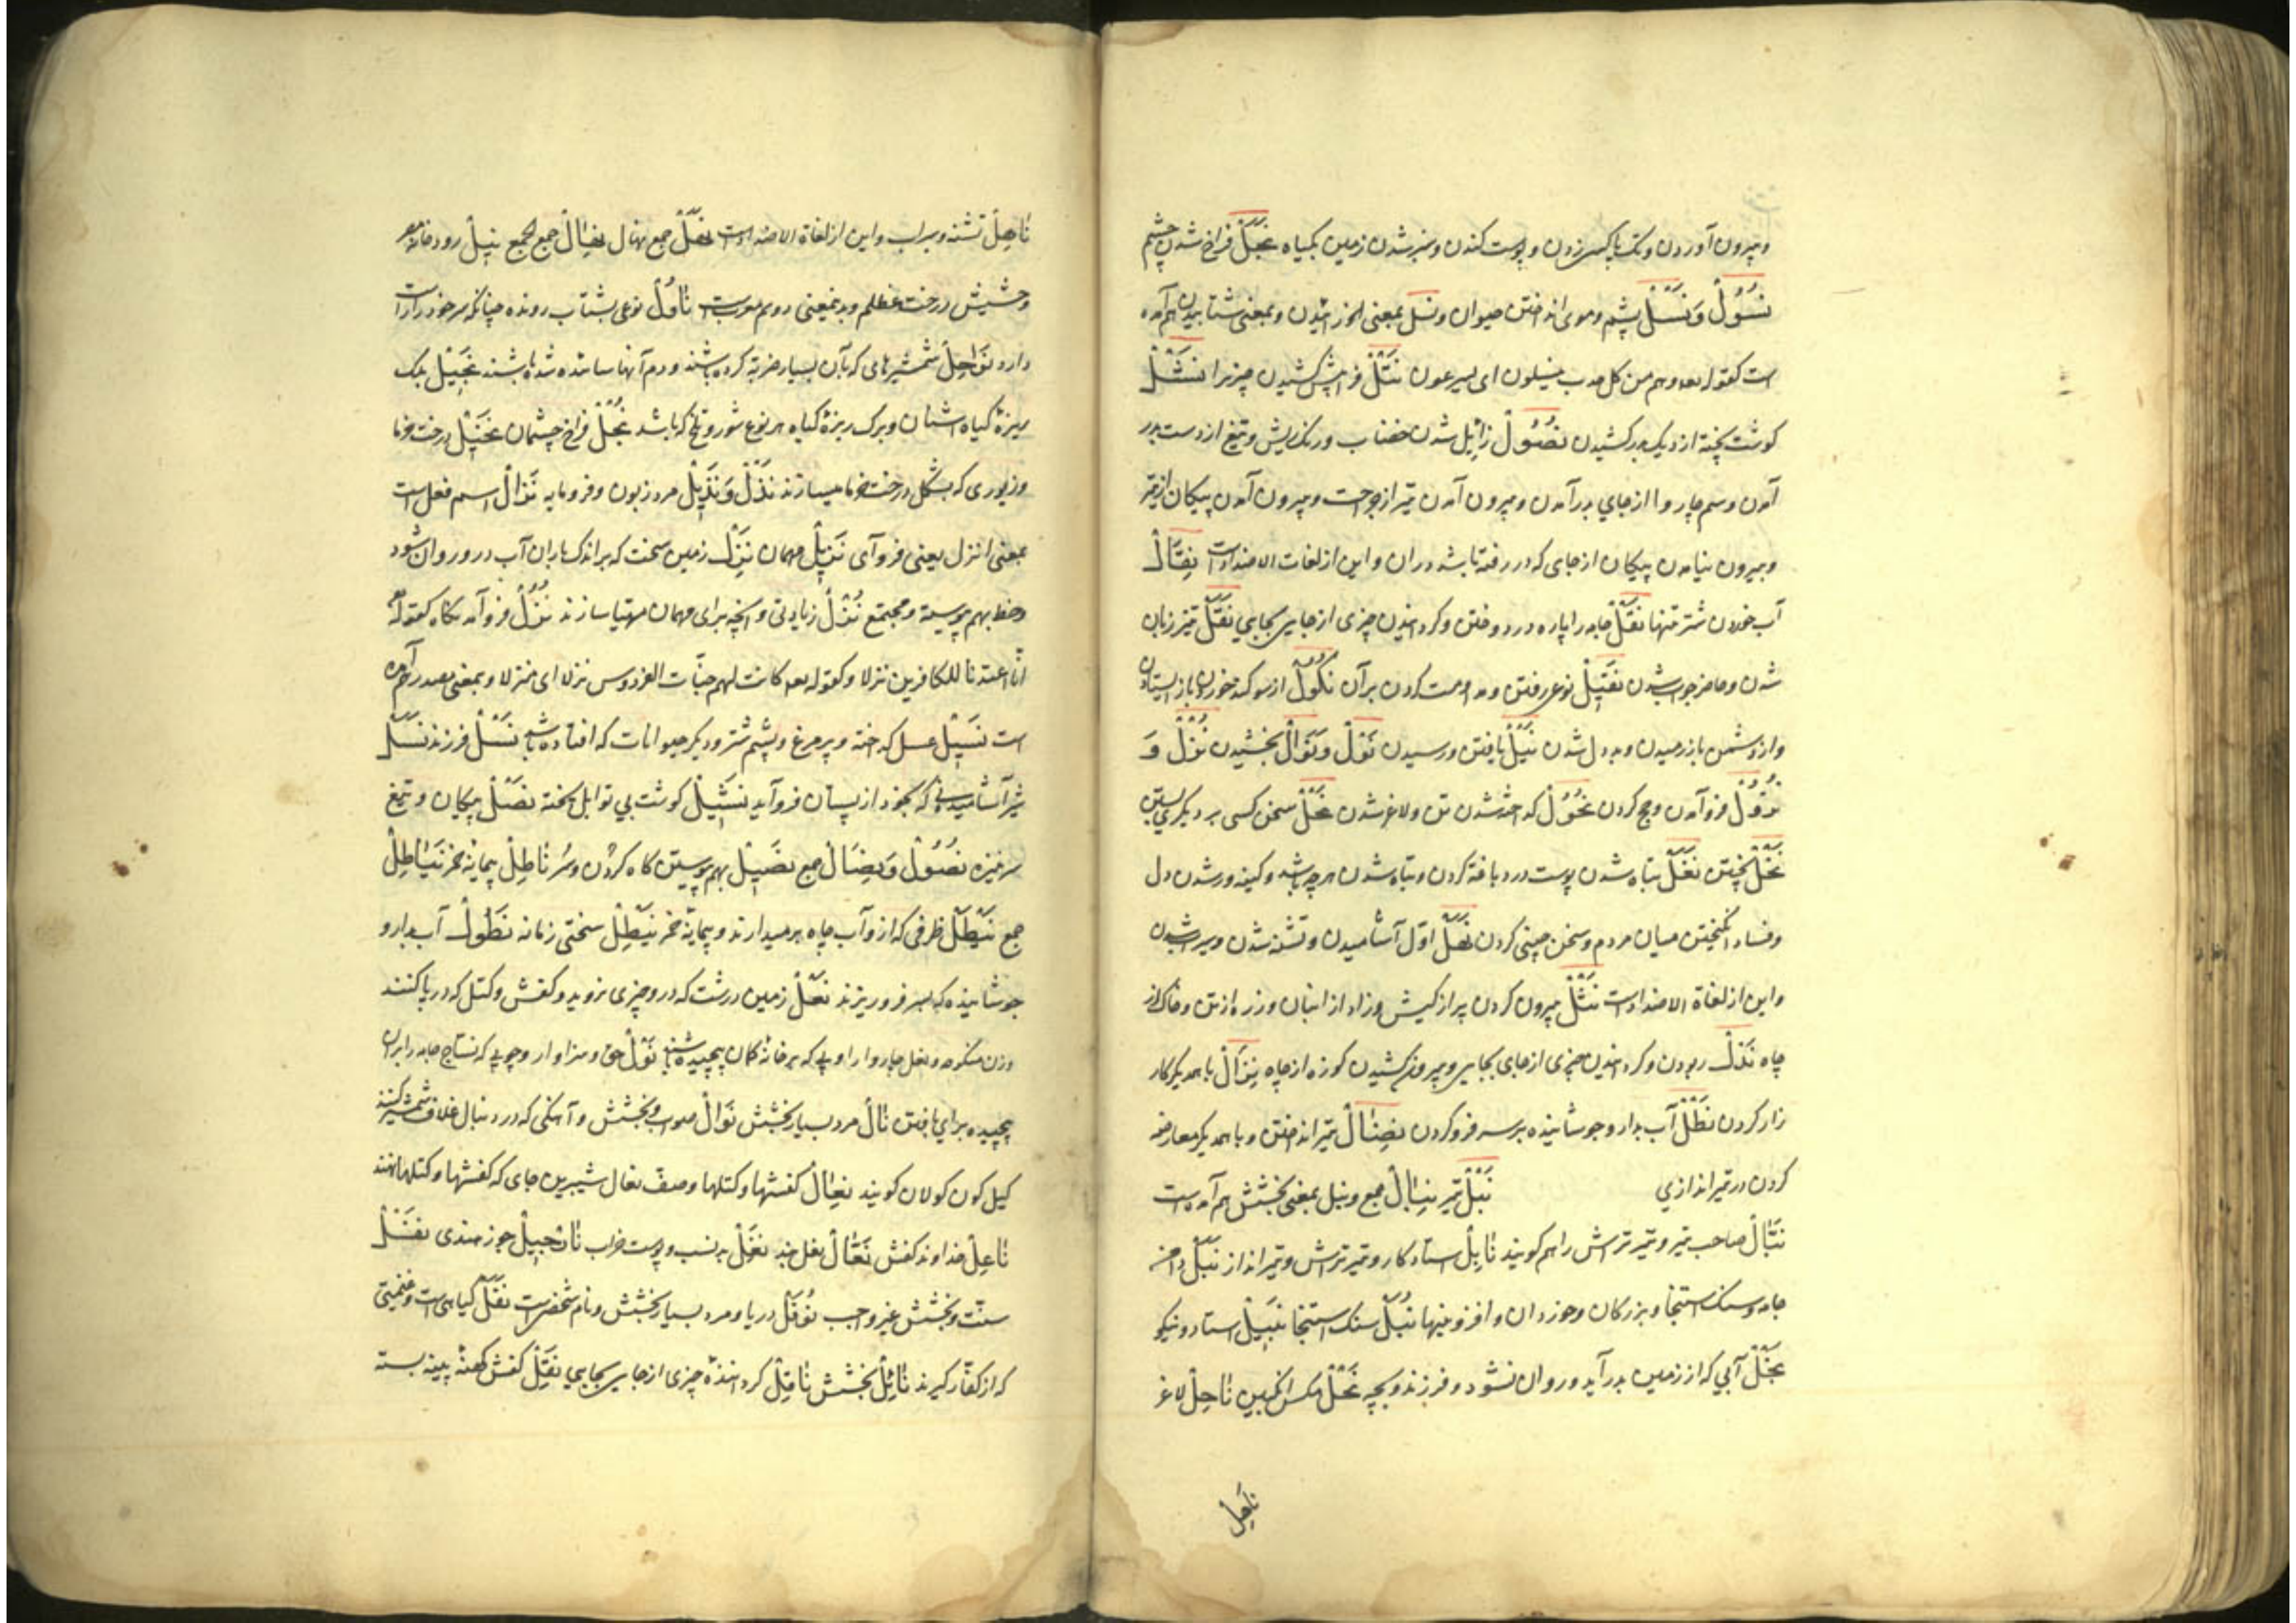 و بیرون آوردن و تک پا کسی زدن و پوست کندن و سبز شدن زمین بکیاه نَجَلْ فراخ شدن چشم
نُسُوُلْ وَ نَسْلْ پشم و موی انداختن حیوان و نسل بمعنی و بمعنی شتابیدن هم آمده
است کقوله وهم من کل حدب ینسلون ای یسرعون نَتْلْ فراپیش کشیدن چیزیرا نَشْلْ
کوشت پخته از دیک بدر کشیدن نُصُوُلْ زائیل شدن خضاب و رنک ریش و تیغ از دست بدر
آمدن و سم چاروا از جاي بدر آمدن و بیرون آمدن تیر از جراحت و بیرون آمدن پیکان از تیر
و بیرون نیامدن پیکان از جای که در رفته باشد در ان و این از لغات الاضداد است
آب خوردن شتر تنها نَقْلْ جامه را پاره در دوختن و کردانیدن چیزی از جایی بجایي نَقَلْ تیز زبان
شدن و حاضر جواب شدن نَقِیْلْ نوعی رفتن و مداومت کردن بر آن نُکُوُلْ از سوکند خوردن باز ایستادن
و از دشمن باز رمیدن و بد دل شدن نَیْلْ یافتن و رسیدن نَوْلْ وَ نَوَالْ بخشیدن نُزْلْ وَ
نُزُوْلْ فرو آمدن و حج کردن نُحُوُلْ کداخته شدن تن و لاغر شدن نَحْلْ سخن کسی بر دیکری بستن
نَخْلْ بیختن نَغَلْ تباه شدن پوست در دباغة کردن و تباه شدن هر چه باشد و کینه ور شدن دل
و فساد انکیختن میان مردم و سخن چینی کردن نَهَلْ اوّل آشامیدن و تشنه شدن و سیراب شدن
و این از لغاة الاضداد است نَثْلْ بیرون کردن پر از کیش و زاد از انبان و زره از تن و خاک از
چاه نَدْلْ ربودن و کردانیدن چیزی از جای بجایی و بیرون کشیدن کوزه از چاه نِزَالْ با همدیکر کار
زار کردن نَطْلْ آب بدارو جوشانیده بر سر فرو کردن نِضَالْ تیر انداختن و با همدیکر معارضه
کردن در تیر اندازي نَبْلْ تیر نِبَالْ جمع و نبل بمعنی بخشش هم آمده است
نَبَّالْ صاحب تیر و تیر تراش را هم کویند نَابِلْ استاد کار و تیر تراش و تیر انداز نَبَلْ
جامه و سنک استنجا و بزرکان و خوردان و افزونیها نُبَلْ سنک استنجا نَبِیْلْ استاد و نیکو
نَجْلْ آبي که از زمین بدر آید و روان نشود و فرزند و بچه نَحْلْ مکس انکبین نَاحِلْ لاغر
نَاهِلْ
نَاهِلْ تشنه و سیراب و این از لغاة الاضداد است نَهَلْ جمع نهال جمع الجمع نِیْلْ رودخانه مصر
و حشیش درخت عظلم و بدینمعنی دوم معرب است نَاوُلْ نوعی بشتاب رونده چنانکه سر خود را راست
دارد نَوَاحِلْ شمشیرهای که بآن بسیار ضربة کرده باشند و دم آنها سائیده شده باشند نَجِیْلْ
ریزهٔ کیاه اشنان و برک ریزهٔ کیاه هر نوع شور و تلخ که باشد نُجْلْ فراخ چشمان نَخِیْلْ درخت خرما
و زیوری که بشکل درخت خرما میسازند نَذْلْ وَ نَذِیْلْ مرد زبون و فرومایه نَزَالْ اسم فعل است
بمعنی انزل یعنی فرو آی نَزِیْلْ مهمان نَزِلْ زمین سخت که براندک باران آب در و روان شود
و خط بهم پیوسته و مجتمع نُزْلْ زیادتی و آنچه برای مهمان مهیّا سازند نُزُلْ فرو آمدنکاه کقوله
انّا اعتدنا للکافرین نزلا و کقوله کانت لهم جنّات الفردوس نزلا ای منزلا و بمعنی مصدر آمده
است نَسِیْلْ عسل کداخته و پر مرغ و پشم شتر و دیکر حیوانات که افتاده باشد نَسْلْ فرزند نَسَلْ
شیر که بخود از پستان فرو آید نَشِیْلْ کوشت بي توابل پخته نَصْلْ پیکان و تیغ
سر نیزه نُصُوُلْ وَ نِصَالْ جمع نَصِیْلْ بهم پیوستن کاه کردن و سَر نَاطِلْ پیمانهٔ خمر نَیَاطِلْ
جمع نَیْطَلْ ظرفی که از و آب چاه برمیدارند و پیمانهٔ خمر نَیْطِلْ سختی زمانه نَطُوْلْ آب بدارو
جوشانیده که بسر فرو ریزند نَعْلْ زمین درشت که در و چیزی نروید و کفش و کتل که در پا کنند
و زن منکوحه و نعل چاروا را و پی که بر خانهٔ کمان پیچیده باشند نَوْلْ حق و سزاوار و چوبی که نسّاج جامه را بر ان
پیچیده براي بافتن نَالْ مرد بسیار بخشش نَوَالْ صواب و بخشش و آهنکی که در دنبال غلاف شمشیر کنند
کیل کون کولان کویند نِعَالْ کفشها و کتلها و صفّ نعال شیبرین جای که کفشها و کتلها نهند
نَاعِلْ خداوند کفش نَعَّالْ نعل بند نَغِلْ بد نسب و پوست خراب نَارَجِیْلْ جوز هندی نَفْلْ
سنّت و بخشش غیر واجب نُوْفَلْ دریا و مرد بسیار بخشش و نام شخصی است نَفَلْ کیاهی است و غنیمتی
که از کفّار کیرند نَائِلْ بخشش نَاقِلْ کردانندهٔ چیزی از جایی بجایي نَقِلْ کفش کهنهٔ پینه بسته